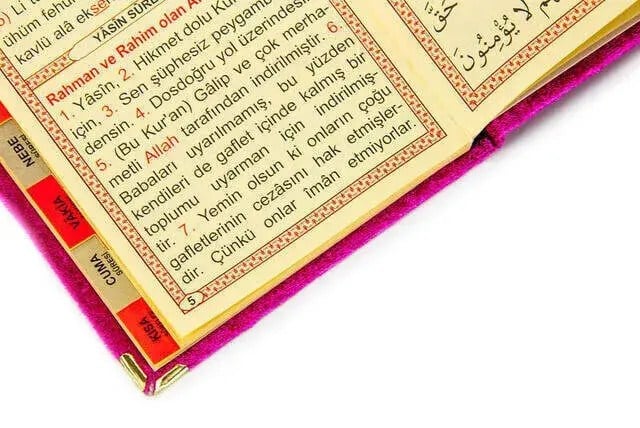 ) Lİ t
ühüm fehu
kavlü alâ eksen
YÂSİN SÛR
Rahman ve Rahim olan Al
1. Yâsîn. 2. Hikmet dolu Kur
için, 3. Sen şüphesiz peygam
densin. 4. Dosdoğru yol üzerindesi
5. (Bu Kur'an) Gâlip ve çok merha
metli Allah tarafından indirilmiştir. 6.
Babaları uyarılmamış, bu yüzden
kendileri de gaflet içinde kalmış bir
toplumu uyarman için indirilmiş-
tir. 7. Yemin olsun ki onların çoğu
gafletlerinin cezasını hak etmişler-
dir. Çünkü onlar îmân etmiyorlar.
5
حَقَّ
لَا يُؤْمِنُونَ
NEBE
VÂKIA
CUMA
SÛRESİ
KISA